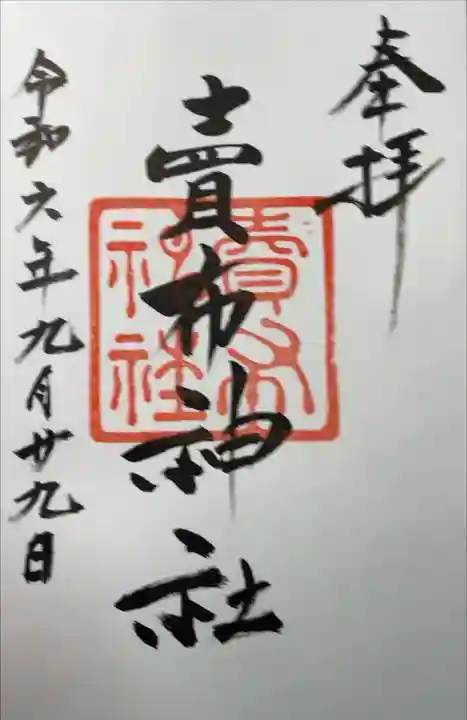 奉拝
賣布神社
賣布
神社
令和六年九月廿九日